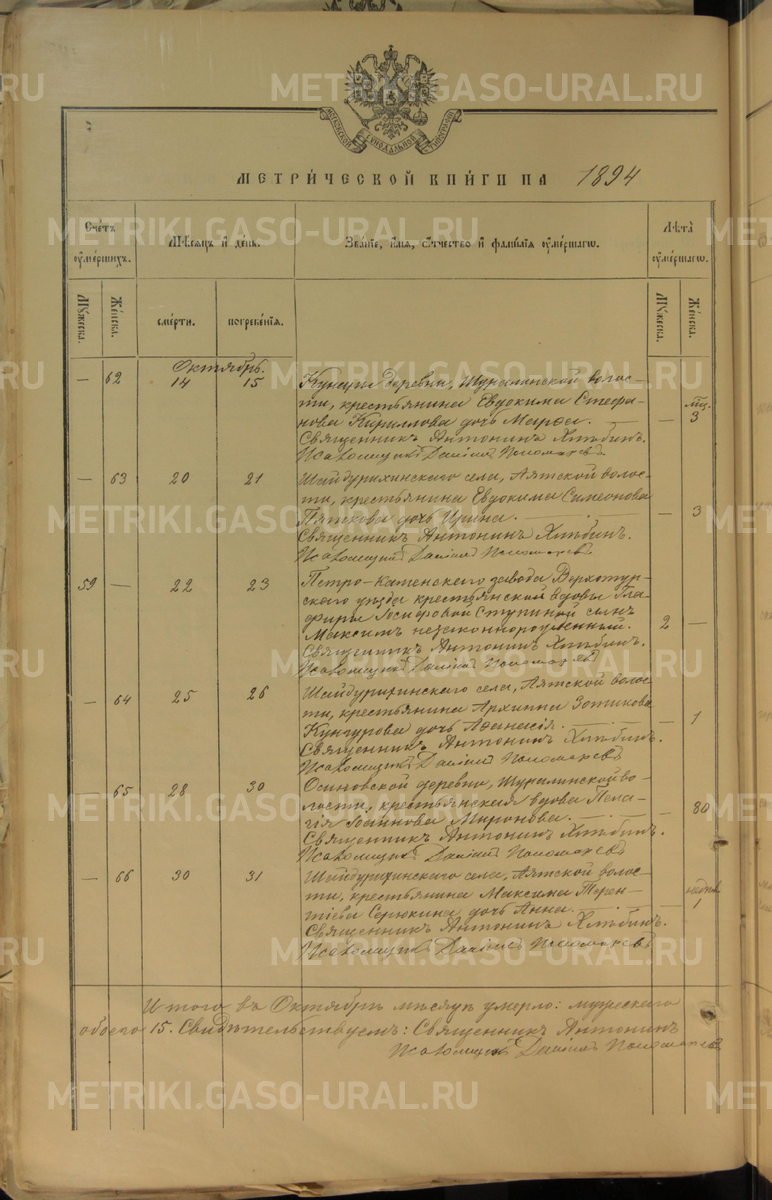 МОСКОВСКОЙ СѴНОДАЛЬНОЙ ТИПОГРАФІИ
МЕТРИ́ЧЕСКОЙ КНИ́ГИ НА 1894
Сче́тъ ᲂу҆ме́ршихъ.
Мѣ́сяцъ и҆ де́нь.
Зва́нїе, и҆́мя, ѻ҆́тчество и҆ фами́лїя ᲂу҆ме́ршагѡ.
Лѣ́та ᲂу҆ме́ршагѡ.
Мꙋ́жеска.
Же́нска.
сме́рти.
погребе́нїя.
Мꙋ́жеска.
Же́нска.
Октябрь.
— 62 14 15 Кунары деревни, Шуралинской волос-
ти, крестьянина Евдокима Стефа-
нова Кириллова дочь Марѳа. — — мѣс. 3
Священникъ Антонинъ Хлѣбинъ.
Псаломщикъ Даніилъ Пономаревъ
— 63 20 21 Шайдурихинскаго села, Аятской волос-
ти, крестьянина Евдокима Симеонова
Пяткова дочь Ирина. — — 3
Священникъ Антонинъ Хлѣбинъ.
Псаломщикъ Даніилъ Пономаревъ
59 — 22 23 Петро-Каменскаго завода Верхотур-
скаго уѣзда крестьянской вдовы Гла-
фиры Іосифовой Ступиной сынъ
Максимъ незаконнорожденный. 2 —
Священникъ Антонинъ Хлѣбинъ.
Псаломщикъ Даніилъ Пономаревъ
— 64 25 26 Шайдурихинскаго села, Аятской волос-
ти, крестьянина Архиппа Зотикова
Кунгурова дочь Аѳанасія. — — 1
Священникъ Антонинъ Хлѣбинъ.
Псаломщикъ Даніилъ Пономаревъ
— 65 28 30 Осиновской деревни, Шуралинской во-
лости, крестьянская вдова Пела-
гія Іоаннова Миронова. — — 80
Священникъ Антонинъ Хлѣбинъ.
Псаломщикъ Даніилъ Пономаревъ
— 66 30 31 Шайдурихинскаго села, Аятской волос-
ти, крестьянина Максима Терен-
тіева Серюкина дочь Анна. — — недѣля 1
Священникъ Антонинъ Хлѣбинъ.
Псаломщикъ Даніилъ Пономаревъ
Итого въ Октябрѣ мѣсяцѣ умерло: мужескаго
обоего 15. Свидѣтельствуемъ: Священникъ Антонинъ
Псаломщикъ Даніилъ Пономаревъ
METRIKI.GASO-URAL.RU